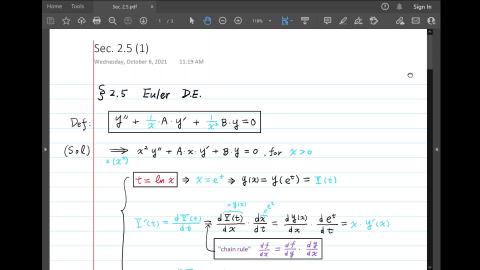 Home Tools Sec. 2.5.pdf Sign In
1 / 3 118%
Sec. 2.5 (1)
Wednesday, October 6, 2021 11:19 AM
§ 2.5 Euler D.E.
Def: y'' + 1/x · A · y' + 1/x² B · y = 0
(Sol) ⟹ x² y'' + A · x · y' + B · y = 0 , for x > 0
x (x²)
t = ln x ⇒ x = e^t ⇒ y(x) = y(e^t) = Y(t)
= y(x) e^t
Y'(t) = dY(t)/dt = dY(t)/dx · dx/dt = dy(x)/dx · de^t/dt = x · y'(x)
"chain rule" df/dx = df/dy · dy/dx